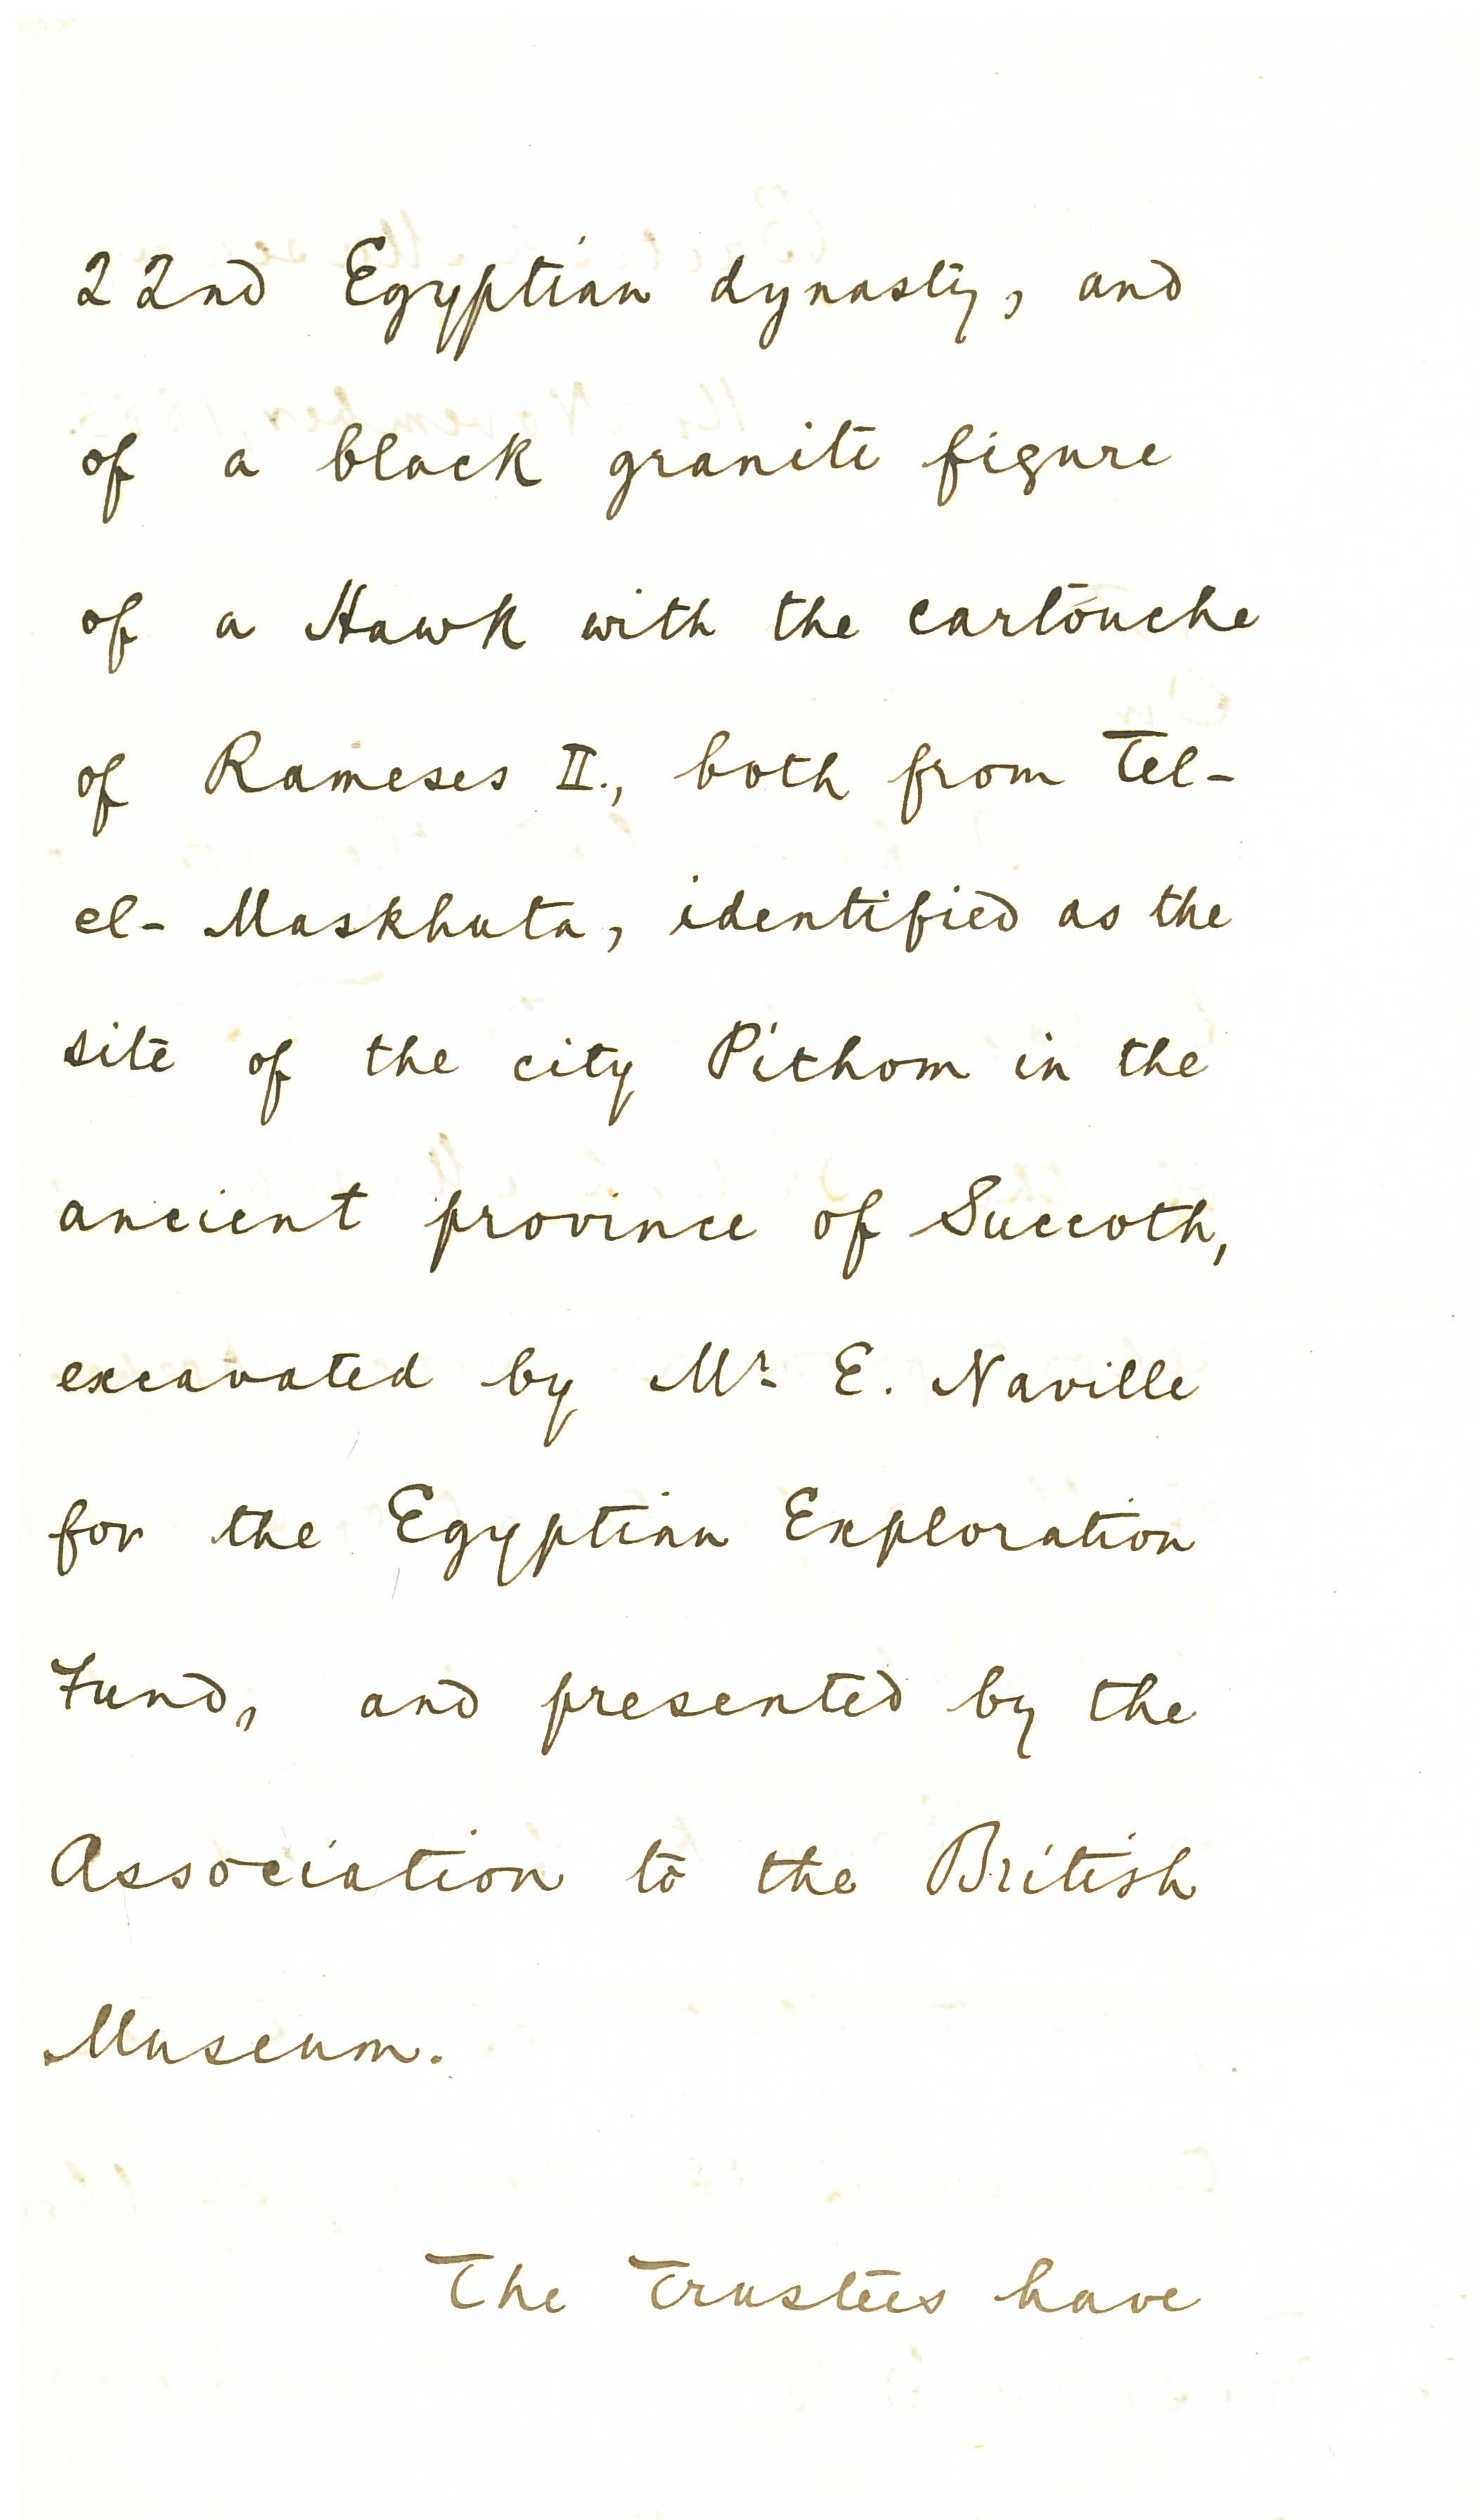 22nd Egyptian dynasty, and
of a black granite figure
of a Hawk with the cartouche
of Rameses II., both from Tel-
el-Maskhuta, identified as the
site of the city Pithom in the
ancient province of Succoth,
excavated by Mr. E. Naville
for the Egyptian Exploration
Fund, and presented by the
Association to the British
Museum.
The Trustees have